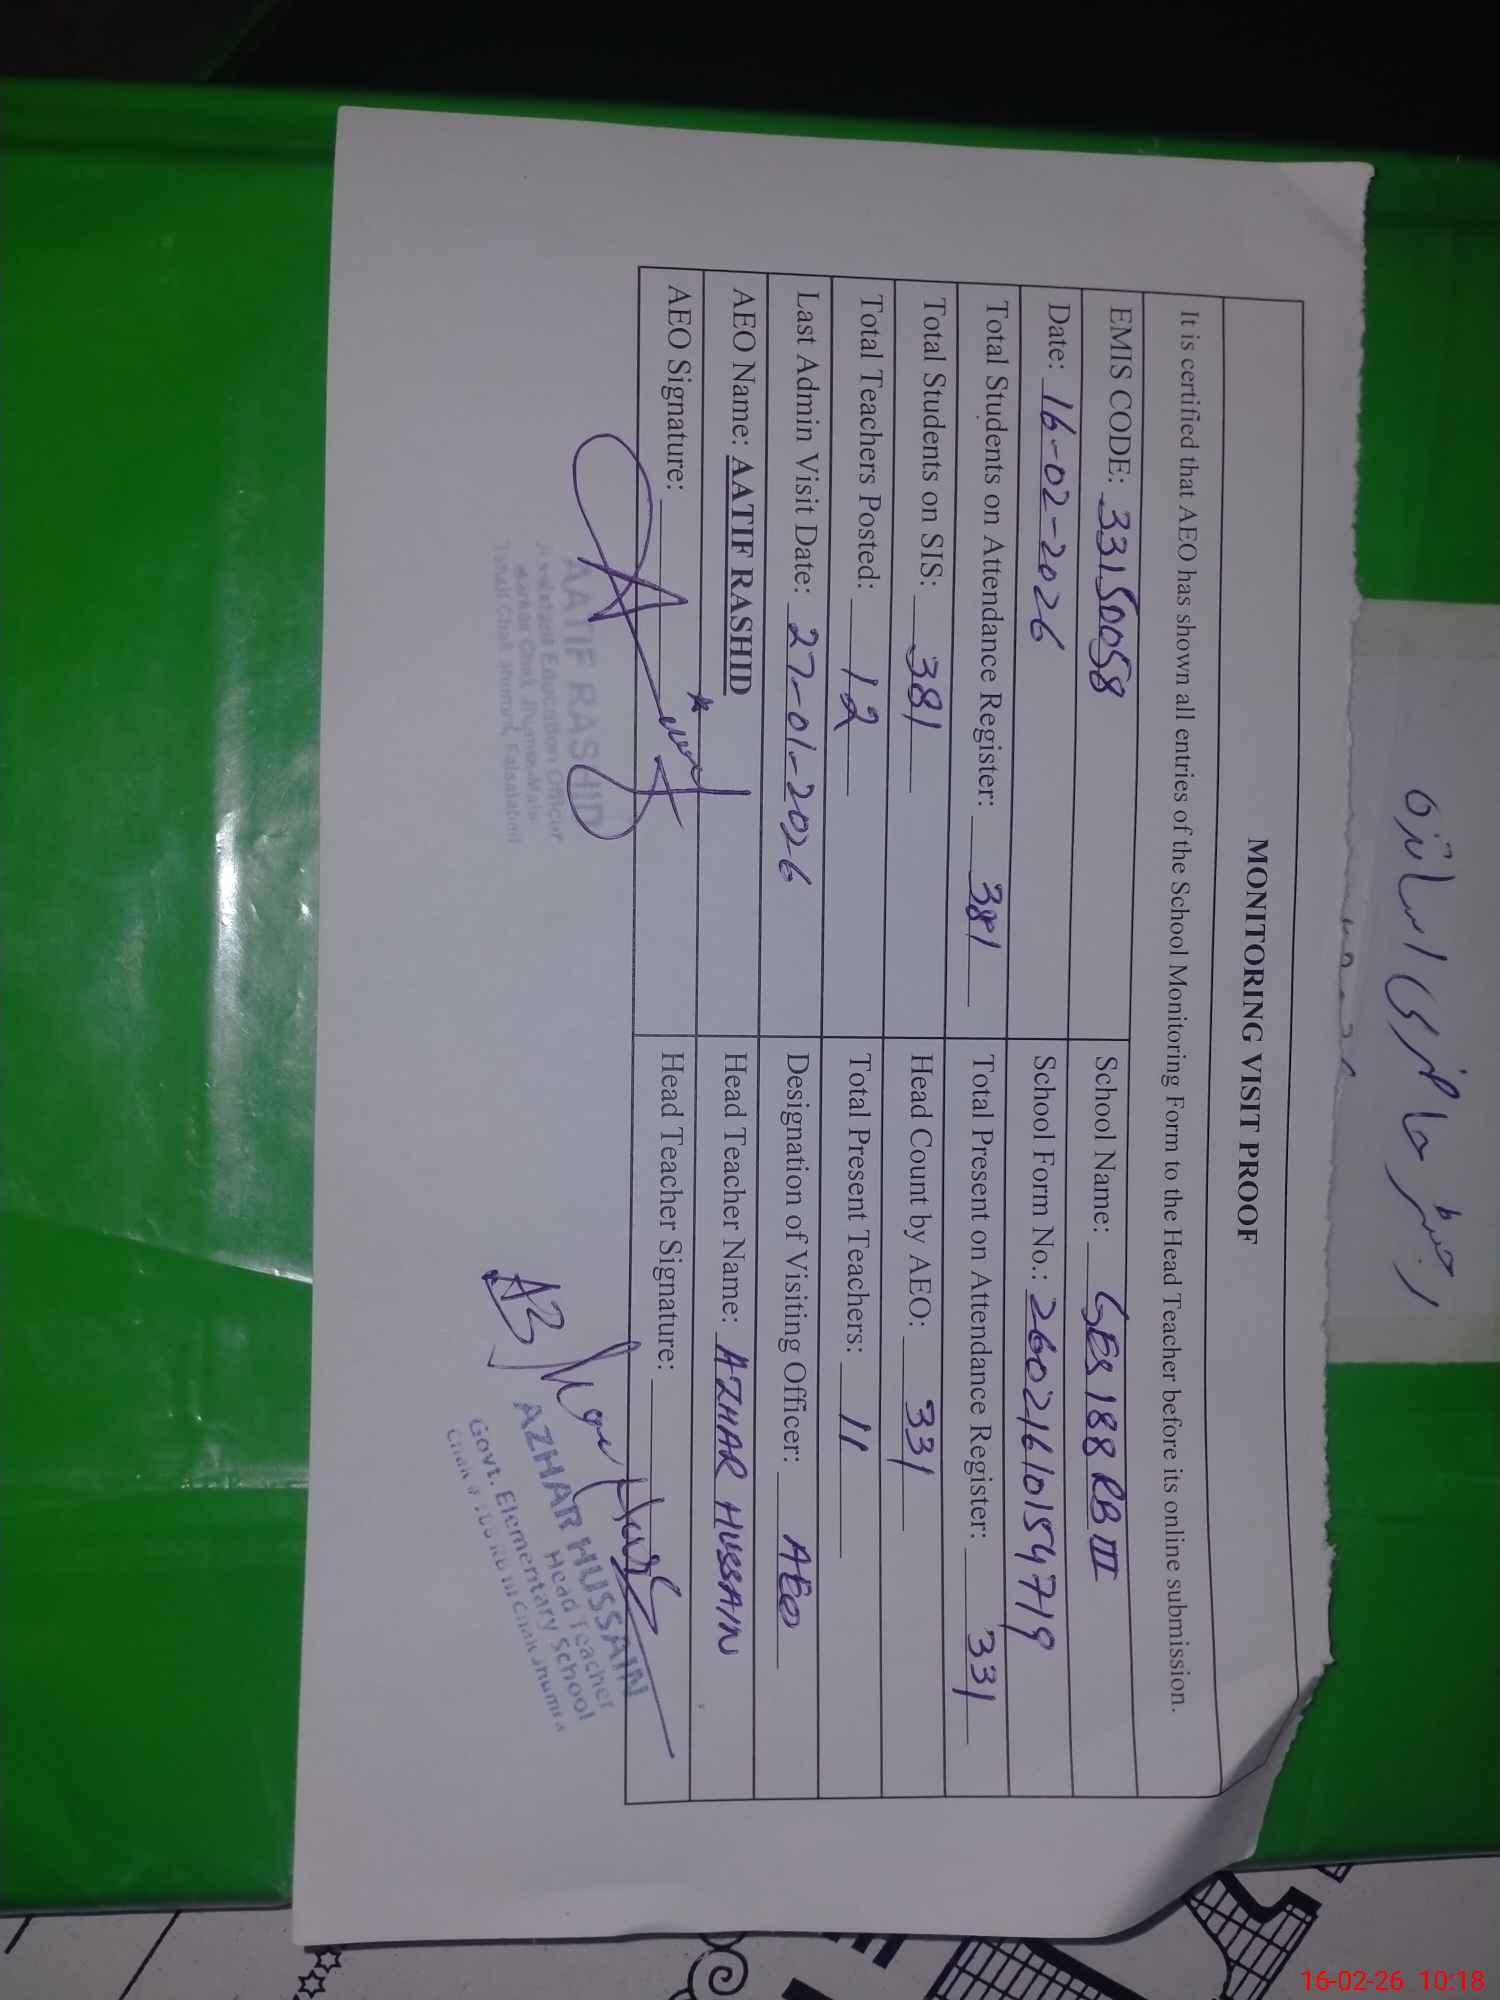 رجسٹر حاضری اساتذہ
MONITORING VISIT PROOF
It is certified that AEO has shown all entries of the School Monitoring Form to the Head Teacher before its online submission.
EMIS CODE: 33150058 School Name: GES 188 RB III
Date: 16-02-2026 School Form No.: 26021610154719
Total Students on Attendance Register: 381 Total Present on Attendance Register: 331
Total Students on SIS: 381 Head Count by AEO: 331
Total Teachers Posted: 12 Total Present Teachers: 11
Last Admin Visit Date: 27-01-2026 Designation of Visiting Officer: AEO
AEO Name: AATIF RASHID Head Teacher Name: AZHAR HUSSAIN
AEO Signature: Head Teacher Signature:
AATIF RASHID
Assistant Education Officer
Tehsil Chak Jhumra, Faisalabad
AZHAR HUSSAIN
Head Teacher
Govt. Elementary School
16-02-26 10:18